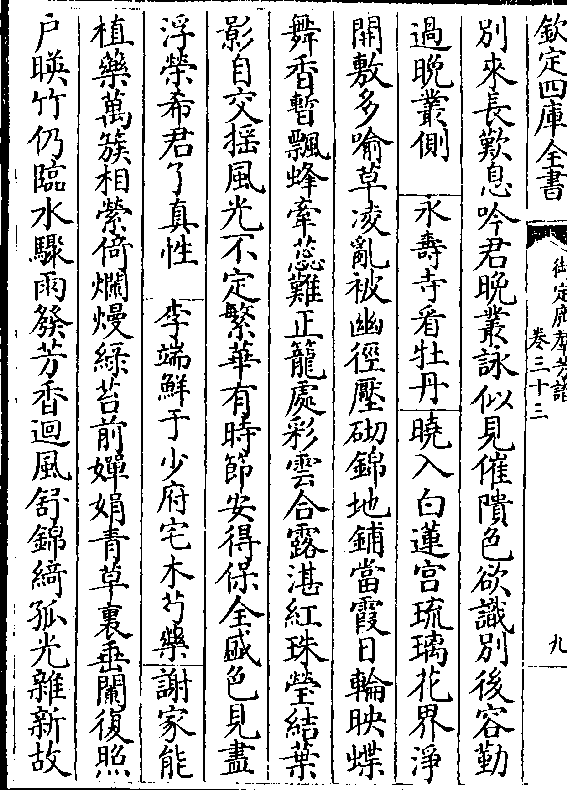 欽定四庫全書
御定廣羣芳譜
卷三十三
九
別來長歎息吟君晚叢詠似見催隤色欲識別後容勤
過晚叢側 永壽寺看牡丹 曉入白蓮宮琉璃花界淨
開敷多喻草凌亂被幽徑壓砌錦地鋪當霞日輪映蝶
舞香暫飄蜂牽蘂難正籠處彩雲合露湛紅珠瑩結葉
影自交揺風光不定繁華有時節安得保全盛色見盡
浮榮希君了真性 李端鮮于少府宅木芍藥 謝家能
植藥萬簇相縈倚爛熳綠苔前嬋娟青草裏垂闌復照
户暎竹仍臨水驟雨發芳香迴風舒錦綺孤光雜新故